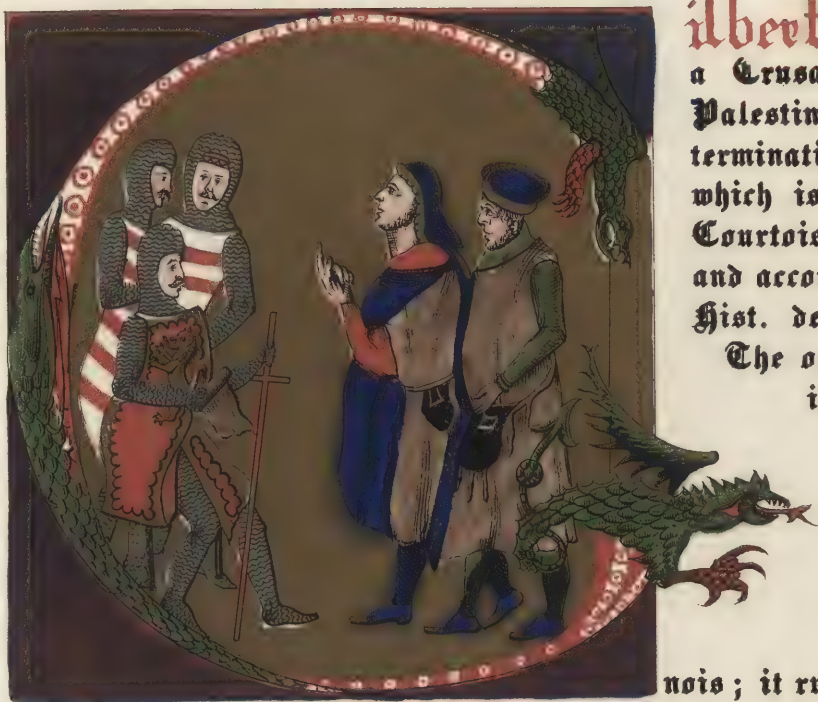 ilbert
a Crusa
Palestin
terminati
which is
Courtois
and accor
Hist. de
The o
i
nois ; it ru